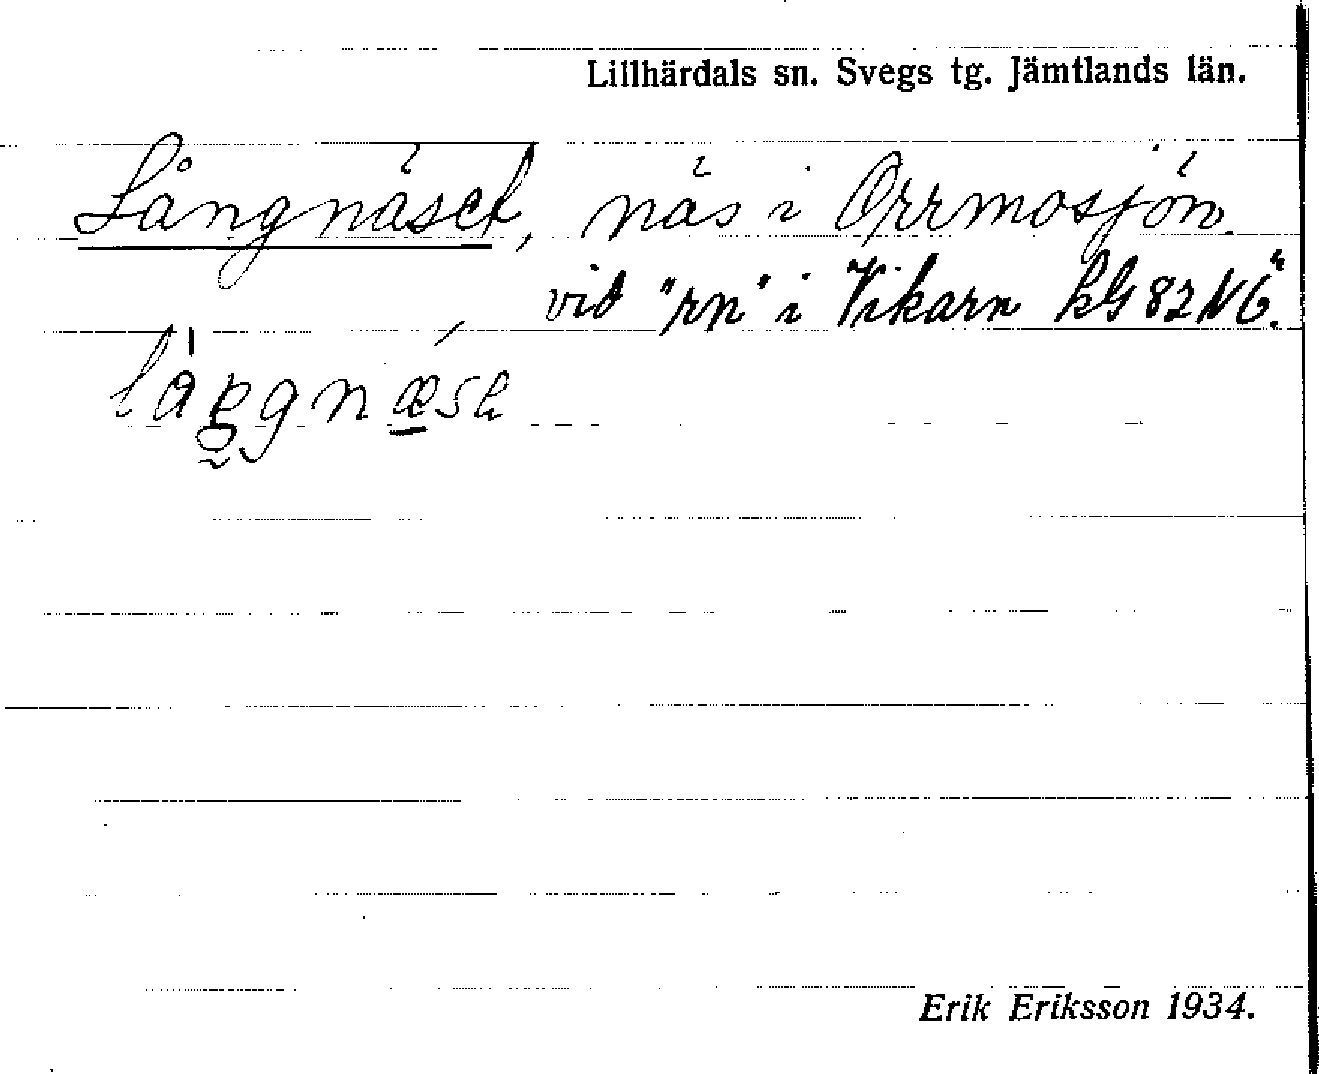 Lillhärdals sn. Svegs tg. Jämtlands län.
Långnäset, näs i Orrmosjön.
vid "rn" i Vikarn kG 82 N6".
Erik Eriksson 1934.